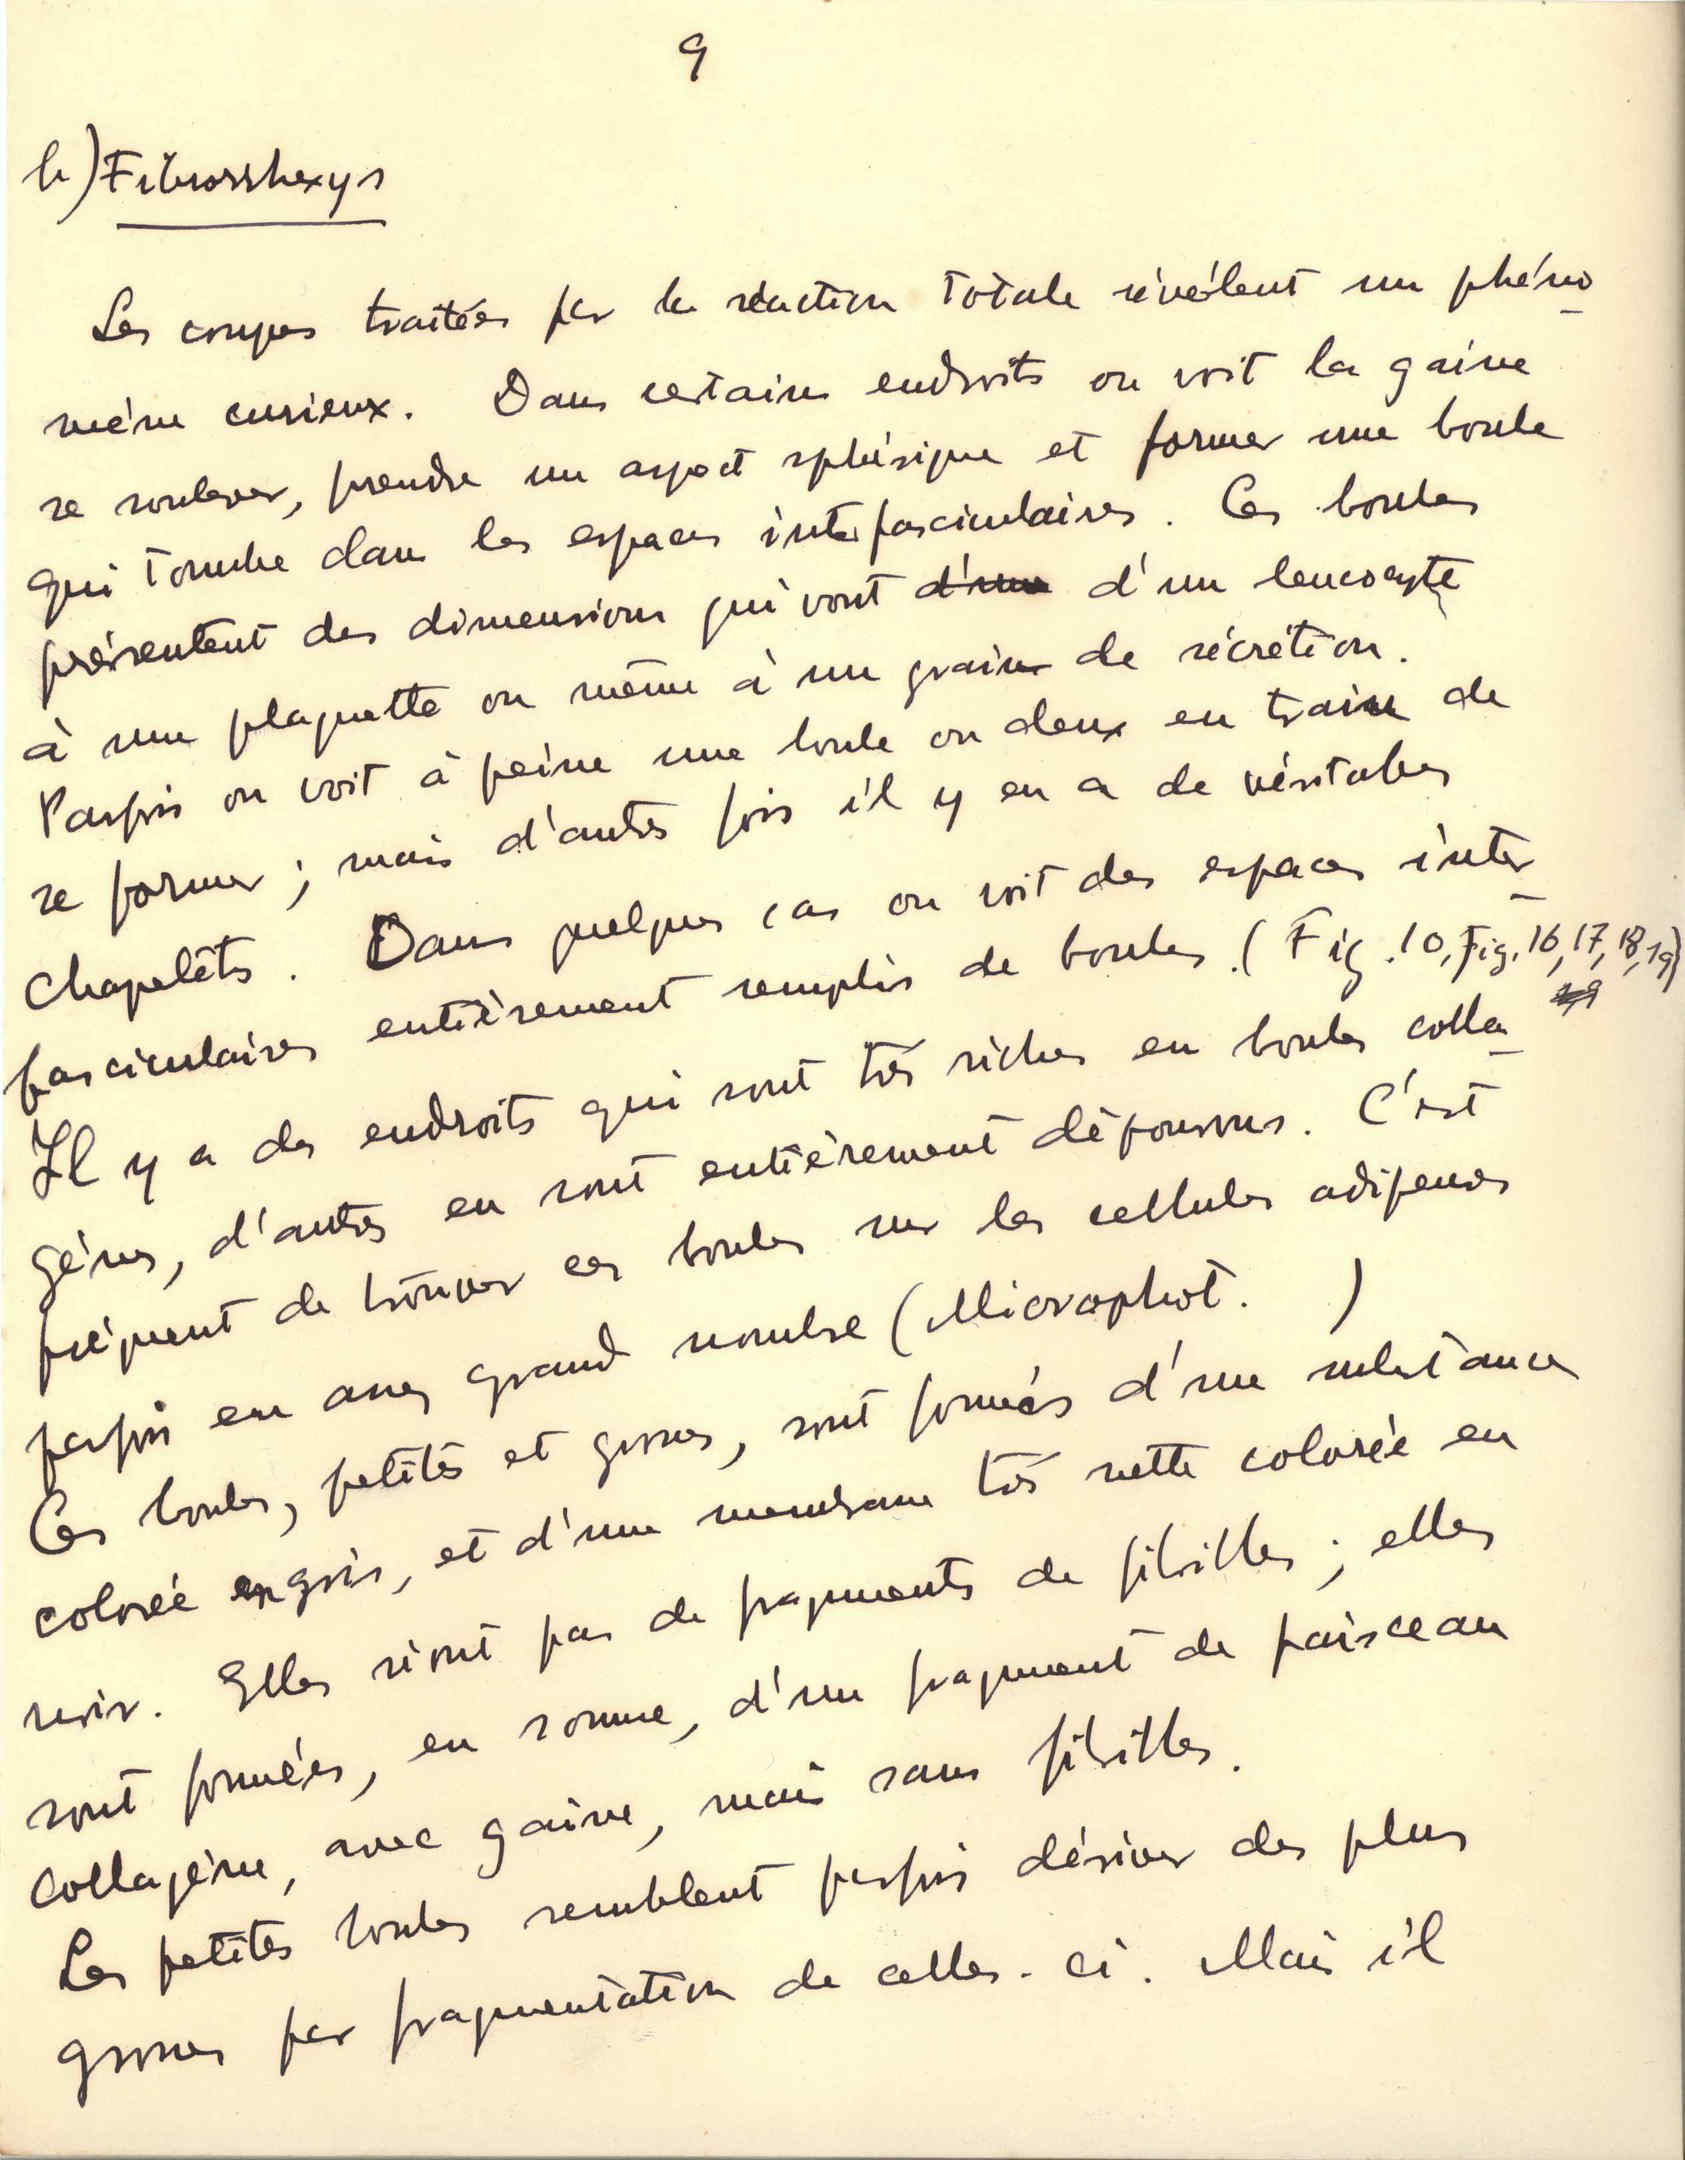 9
b) Fibrorrhexys
Les coupes traitées par la réaction totale révèlent un phéno-
mène curieux. Dans certains endroits on voit la gaine
se soulever, prendre un aspect sphérique et former une boule
qui tombe dans les espaces interfasciculaires. Ces boules
présentent des dimensions qui vont d'une d'un leucocyte
à une plaquette ou même à un grain de sécrétion.
Parfois on voit à peine une boule ou deux en train de
se former ; mais d'autres fois il y en a de véritables
chapelets. Dans quelques cas on voit des espaces inter-
fasciculaires entièrement remplis de boules. (Fig. 10, Fig. 16, 17, 18, 19)
Il y a des endroits qui sont très riches en boules colla-
gènes, d'autres en sont entièrement dépourvus. C'est
fréquent de trouver ces boules sur les cellules adipeuses
parfois en assez grand nombre (Microphot. )
Ces boules, petites et grosses, sont formées d'une substance
colorée en gris, et d'une membrane très nette colorée en
noir. Elles n'ont pas de fragments de fibrilles ; elles
sont formées, en somme, d'un fragment de faisceau
collagène, avec gaine, mais sans fibrilles.
Les petites boules semblent parfois dériver des plus
grosses par fragmentation de celles-ci. Mais il